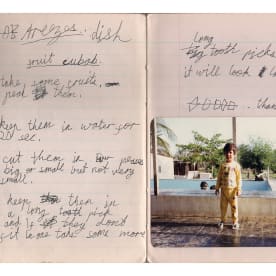 Areezos. dish
fruit cubab.
take some fruits.
peal them.
keep them in water for
20 sec.
cut them in pieces
big or small but not very
small.
keep them in
a long tooth pick
and if they don't
fit in one take some more
long
tooth picks
it will look